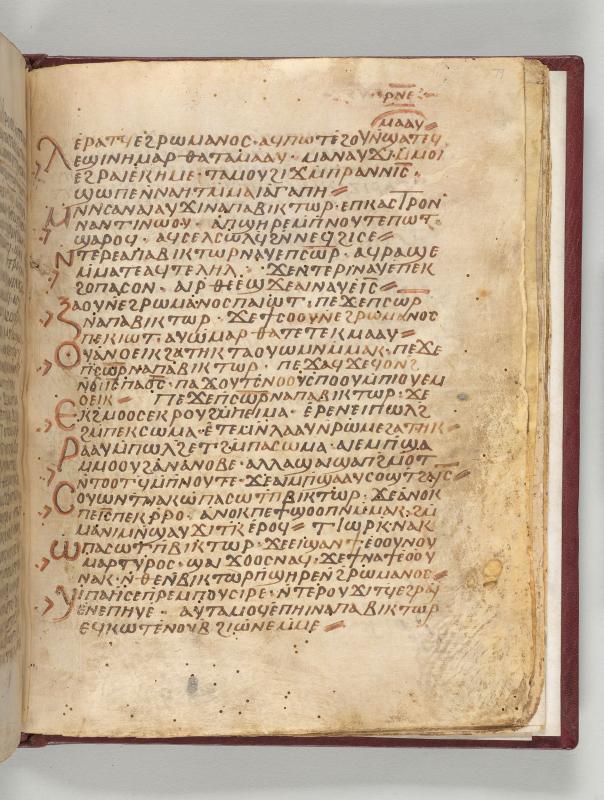 ⲣⲛⲉ
ⲙⲁⲁⲩ
ⲗⲉⲣⲁⲧϥⲉϩⲣⲱⲙⲁⲛⲟⲥ · ⲁϥⲡⲱⲧⲉϩⲟⲩⲛϣⲁⲧⲉϥ
ⲗⲉϣⲓⲛⲏⲙⲁⲣ ⲑⲁⲧⲁⲙⲁⲁⲩ · ⲙⲁⲛⲁⲩϫⲓⲙⲙⲟⲓ
ⲉϩⲣⲁⲓⲉⲕⲏⲙⲉ · ⲧⲁⲙⲟⲩϩⲓϫⲙⲡⲣⲁⲛⲛⲓⲥ
ϣⲱⲡⲉⲛⲛⲁⲏⲧⲙⲙⲁⲓⲁⲅⲁⲡⲏ
ⲙⲛⲛⲥⲁⲛⲁⲓⲁⲩϫⲓⲛⲁⲡⲁⲃⲓⲕⲧⲱⲣ · ⲉⲡⲕⲁⲥⲧⲣⲟⲛ
ⲛⲁⲛⲧⲓⲛⲱⲟⲩ · ⲁⲡϣⲏⲣⲉⲙⲡⲛⲟⲩⲧⲉⲡⲱⲧ
ϣⲁⲣⲟϥ · ⲁϥⲥⲉⲗⲥⲱⲗϥϩⲛⲛⲉϥϩⲓⲥⲉ
ⲛⲧⲉⲣⲉⲁⲡⲁⲃⲓⲕⲧⲱⲣⲛⲁⲩⲉⲡⲥⲱⲣ · ⲁϥⲣⲁϣⲉ
ⲙⲙⲁⲧⲉⲁϥⲧⲉⲗⲏⲗ · ϫⲉⲛⲧⲉⲣⲓⲛⲁⲩⲉⲡⲉⲕ
ϩⲟⲡⲁⲥⲟⲛ · ⲁⲓⲣ ⲑⲉⲉϣϫⲉⲁⲓⲛⲁⲩⲉⲓⲥ
ⲝⲁⲟⲩⲛⲉϩⲣⲱⲙⲁⲛⲟⲥⲡⲁⲓⲱⲧ · ⲡⲉϫⲉⲡⲥⲱⲣ
ⲛⲁⲡⲁⲃⲓⲕⲧⲱⲣ · ϫⲉϯⲥⲟⲟⲩⲛⲉϩⲣⲱⲙⲁⲛⲟⲥ
ⲡⲉⲕⲓⲱⲧ · ⲁⲩⲱⲙⲁⲣ ⲑⲁⲧⲉⲧⲉⲕⲙⲁⲁⲩ
ⲑⲩⲁⲛⲟⲉⲓⲕϩⲁⲧⲏⲕⲧⲁⲟⲩⲱⲙⲛⲙⲙⲁⲕ · ⲡⲉϫⲉ
ⲡⲥⲱⲣⲛⲁⲡⲁⲃⲓⲕⲧⲱⲣ · ⲡⲉϫⲁϥϫⲉϥⲟⲛϩ
ⲛϭⲓⲡⲉⲡⲁⲟⲥ · ⲡⲁϫⲟⲩⲧⲉⲛⲟⲟⲩⲥⲡⲟⲟⲩⲙⲡⲓⲟⲩⲉⲙ
ⲟⲉⲓⲕ ⲡⲉϫⲉⲡⲥⲱⲣⲛⲁⲡⲁⲃⲓⲕⲧⲱⲣ · ϫⲉ
ⲉⲕϩⲙⲟⲟⲥⲉⲕⲣⲟⲩϩⲙⲡⲉⲓⲙⲁ · ⲉⲣⲉⲛⲉⲓⲡⲱⲗϩ
ϩⲙⲡⲉⲕⲥⲱⲙⲁ · ⲉⲧⲉⲙⲛⲗⲁⲁⲩⲛⲣⲱⲙⲉϩⲁⲧⲏⲕ
ⲣⲁⲁⲩⲙⲡⲱⲗϩⲉⲧϩⲙⲡⲁⲥⲱⲙⲁ · ⲁⲓⲉⲙⲡϣⲁ
ⲙⲙⲟⲟⲩϩⲁⲛⲁⲛⲟⲃⲉ · ⲁⲗⲗⲁϣⲁⲓϣⲁⲡϩⲙⲟⲧ
ⲛⲧⲟⲟⲧϥⲙⲡⲛⲟⲩⲧⲉ · ϫⲉⲁⲙⲡϣⲁⲁⲩⲥⲟⲱⲧϩⲁⲓⲥ
ⲥⲟⲩⲱⲛⲧⲛⲁⲕⲱⲡⲁⲥⲱⲧⲡⲃⲓⲕⲧⲱⲣ · ϫⲉⲁⲛⲟⲕ
ⲡⲉⲓⲥⲡⲉⲕⲣⲣⲟ · ⲁⲛⲟⲕⲡⲉⲧϣⲟⲟⲡⲛⲙⲙⲁⲕ · ϩⲙ
ⲙⲁⲛⲓⲙⲛϣⲁⲩϫⲓⲧⲕⲉⲣⲟϥ ϯⲱⲣⲕⲛⲁⲕ
ⲱⲡⲁⲥⲱⲧⲡⲃⲓⲕⲧⲱⲣ · ϫⲉⲉⲓϣⲁⲛϯⲉⲟⲟⲩⲛⲟⲩ
ⲙⲁⲣⲧⲩⲣⲟⲥ · ϣⲁⲓϫⲟⲟⲥⲛⲁϥ · ϫⲉϯⲛⲁϯⲉⲟⲟⲩ
ⲛⲁⲕ · ⲛⲑⲉⲛⲃⲓⲕⲧⲱⲣⲡϣⲏⲣⲉⲛϩⲣⲱⲙⲁⲛⲟⲥ
ⲩⲓⲡⲁⲓⲥⲉⲡⲣⲉⲙⲡⲟⲩⲥⲓⲣⲉ · ⲛⲧⲉⲣⲟⲩϫⲓⲧϥⲉϩⲣⲁⲓ
ⲉⲛⲉⲡⲏⲩⲉ · ⲁⲩⲧⲁⲙⲟϥⲉⲡⲏⲓⲛⲁⲡⲁⲃⲓⲕⲧⲱⲣ
ⲉϥⲕⲱⲧⲉⲛⲟⲩⲃϩⲓⲱⲛⲉⲙⲙⲉ